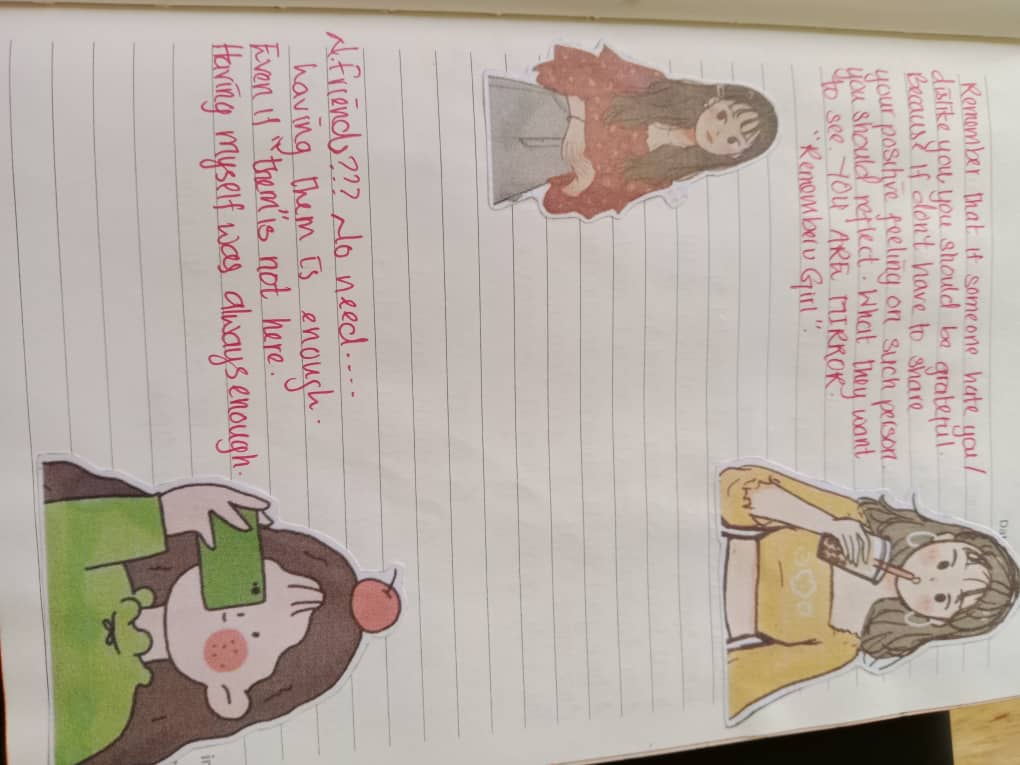 Remember that if someone hate you/
dislike you, you should be grateful.
Because if don't have to share
your positive feeling on such person.
you should reflect. What they want
to see. YOU ARE MIRROR.
"Rememberu Girl".
N.friends??? No need....
having them is enough.
Even if "them" is not here.
Having myself was always enough.